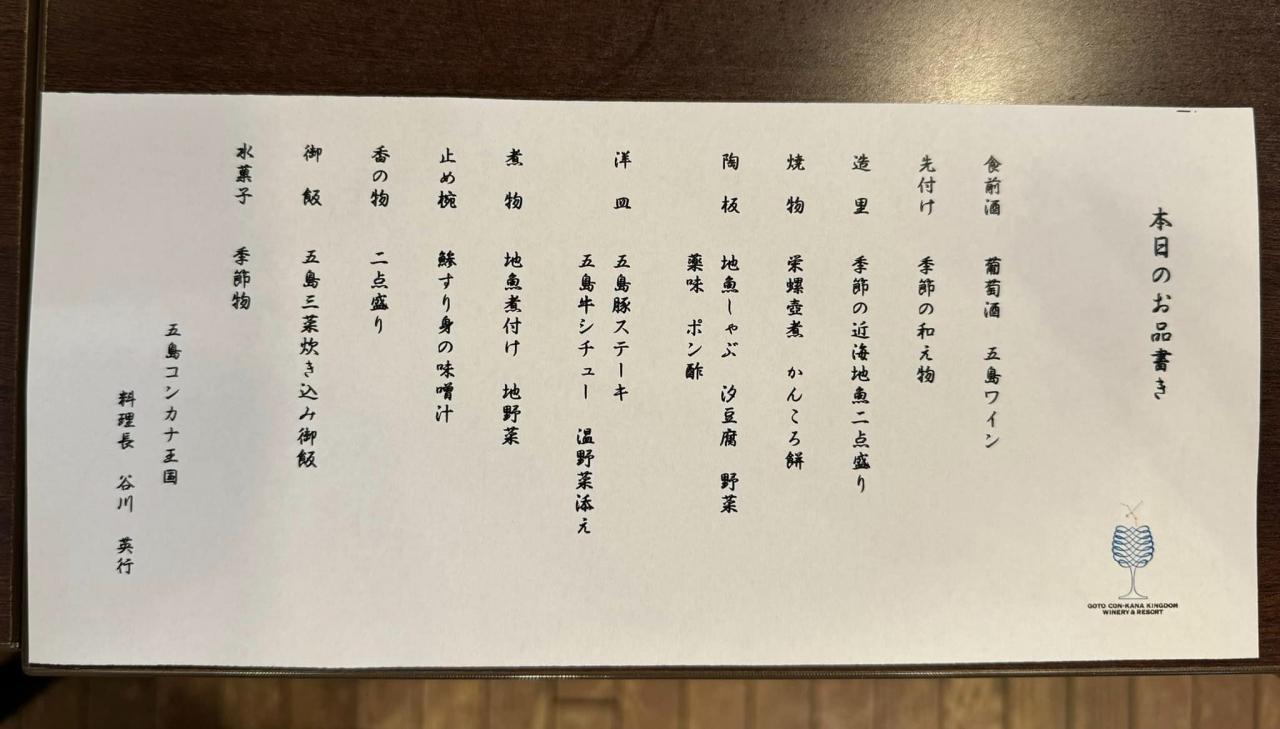 本日のお品書き
食前酒 葡萄酒 五島ワイン
先付け 季節の和え物
造里 季節の近海地魚二点盛り
焼物 栄螺壺煮 かんころ餅
陶板 地魚しゃぶ 汐豆腐 野菜
薬味 ポン酢
洋皿 五島豚ステーキ
五島牛シチュー 温野菜添え
煮物 地魚煮付け 地野菜
止め椀 鯵すり身の味噌汁
香の物 二点盛り
御飯 五島三菜炊き込み御飯
水菓子 季節物
五島コンカナ王国
料理長 谷川 英行
GOTO CON-KANA KINGDOM
WINERY & RESORT